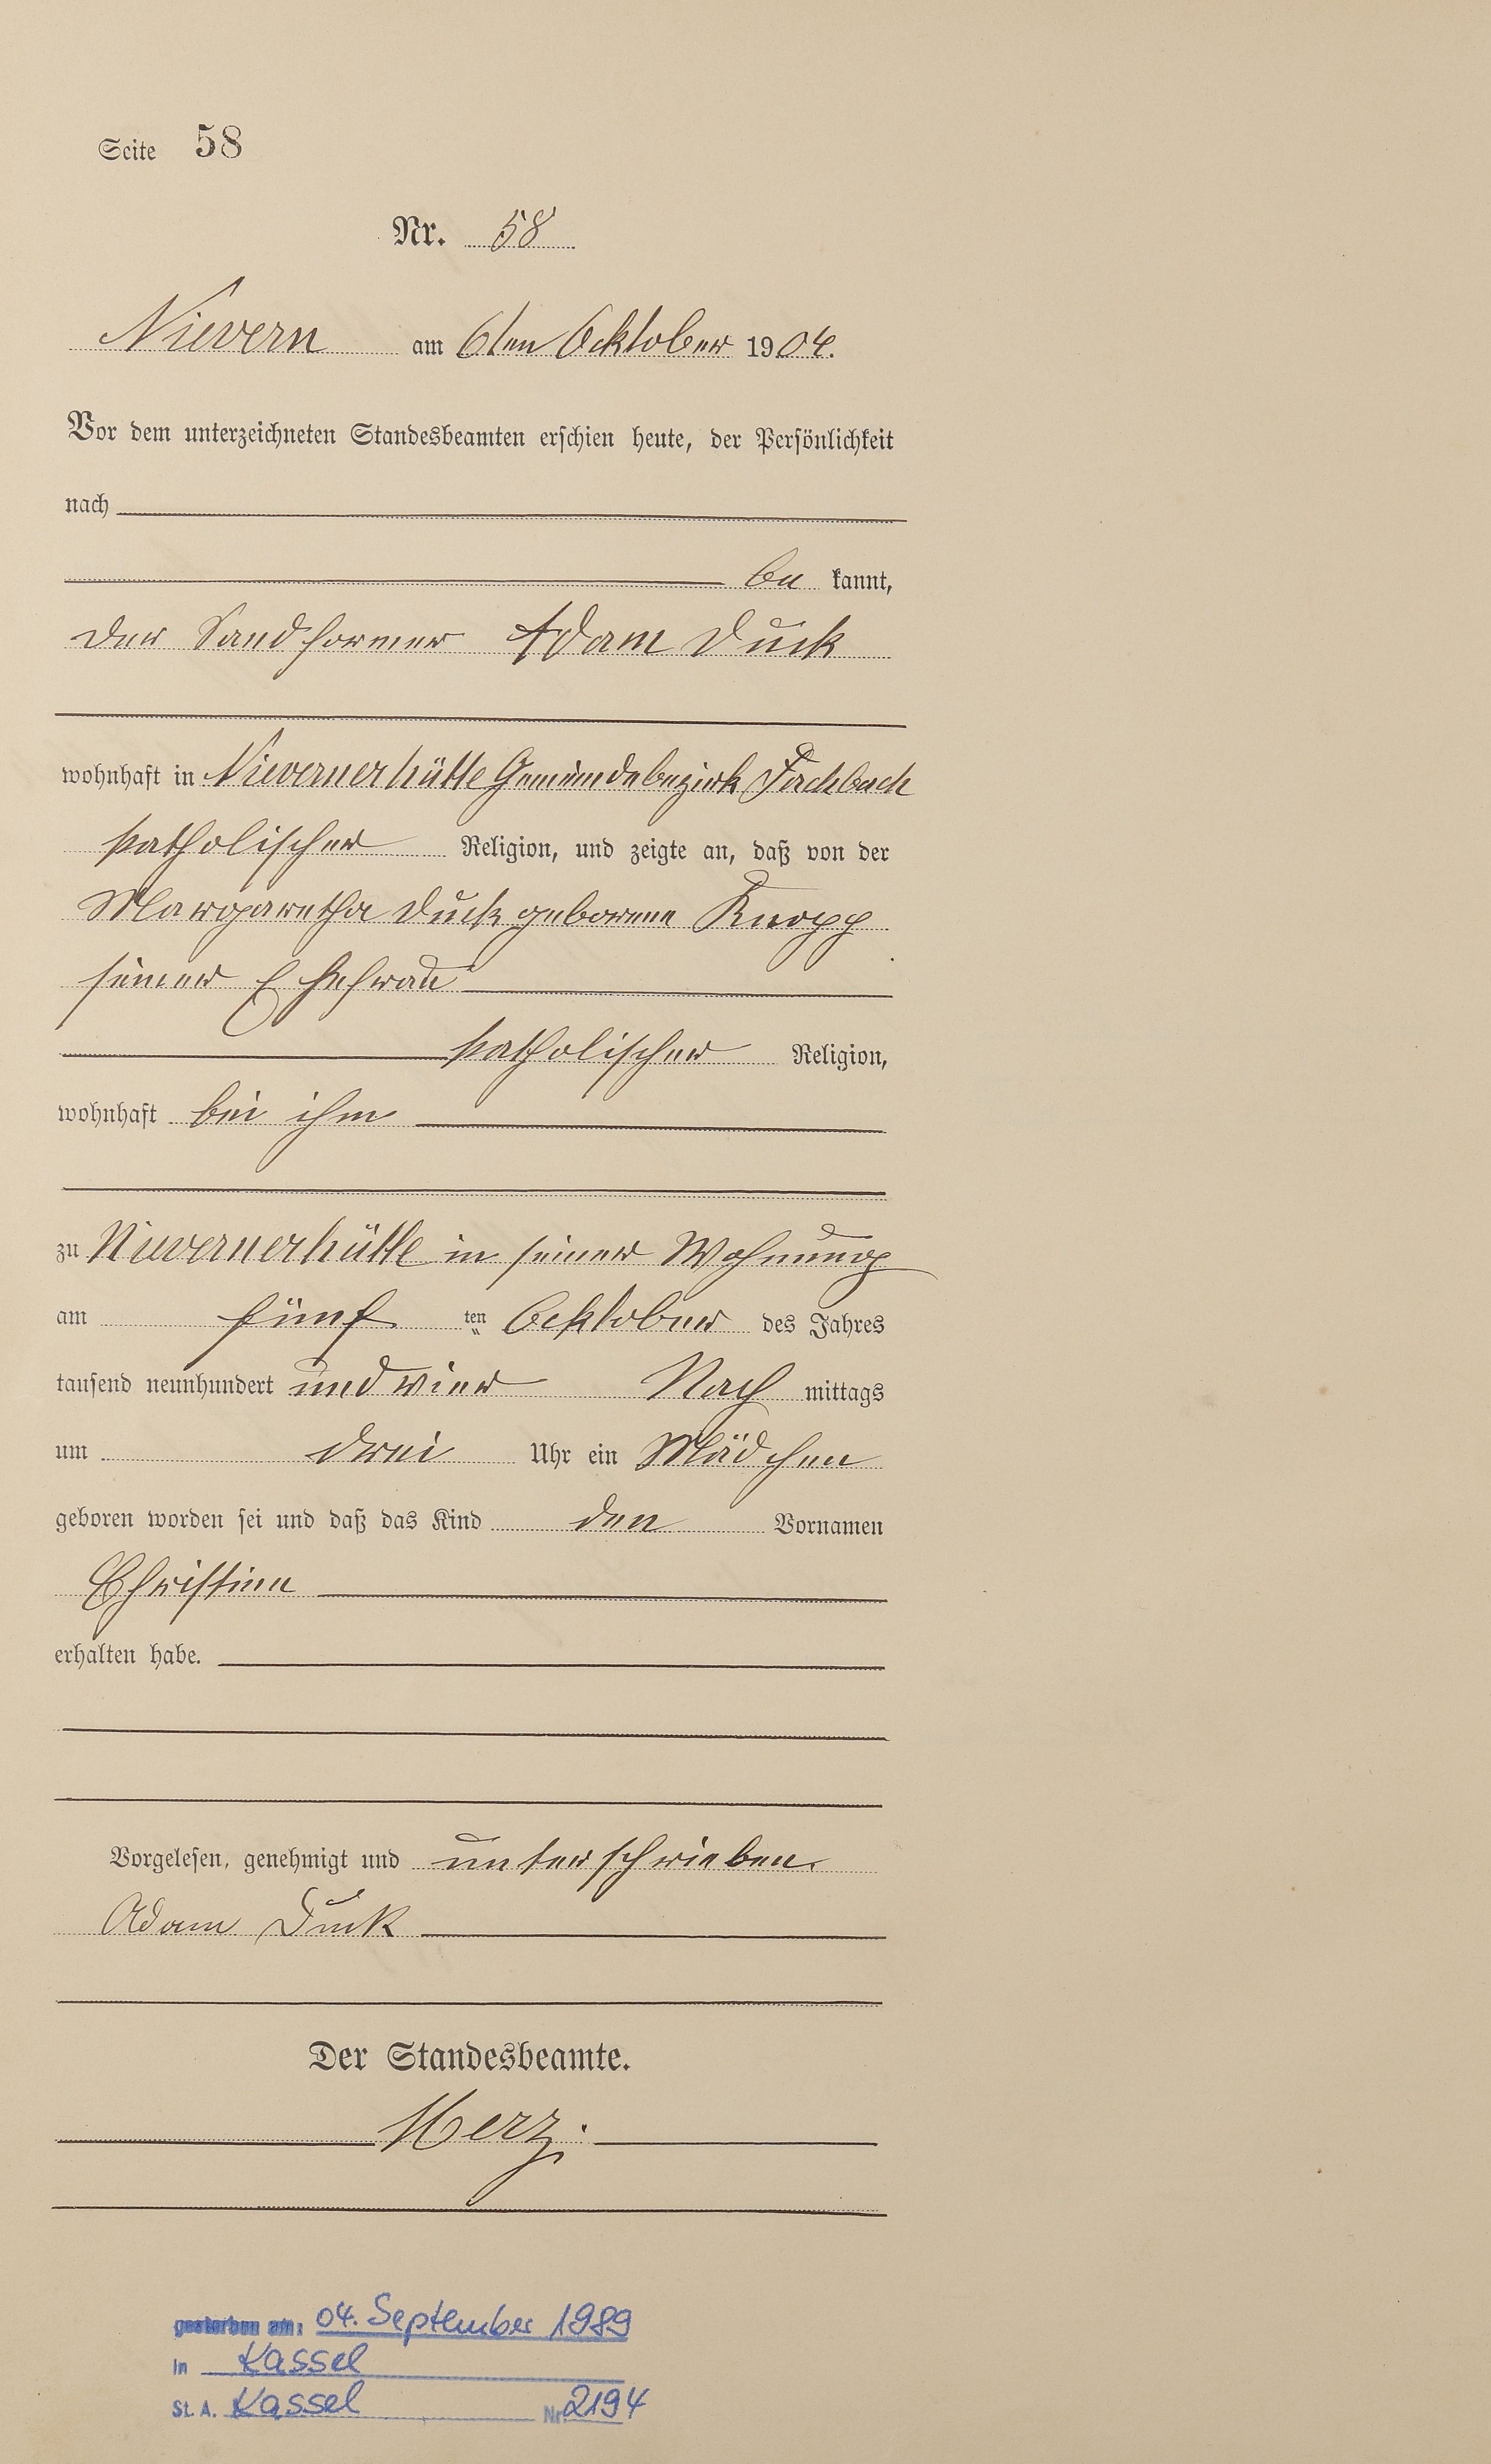 Seite 58
Nr. 58
Nievern am 6ten Ocktober 1904.
Vor dem unterzeichneten Standesbeamten erschien heute, der Persönlichkeit
nach
be kannt,
der Sandformer Adam Duck
wohnhaft in Nievernerhütte Gemeindebezirk Fachbach
katholischer Religion, und zeigte an, daß von der
Margaretha Duck geborene Knopp
seiner Ehefrau
katholischer Religion,
wohnhaft bei ihm
zu Nievernerhütte in seiner Wohnung
am fünf ten Ocktober des Jahres
tausend neunhundert und vier Nach mittags
um drei Uhr ein Mädchen
geboren worden sei und daß das Kind den Vornamen
Christine
erhalten habe.
Vorgelesen, genehmigt und unterschrieben.
Adam Duck
Der Standesbeamte.
Merz.
gestorben am: 04. September 1989
in Kassel
St. A. Kassel Nr. 2194